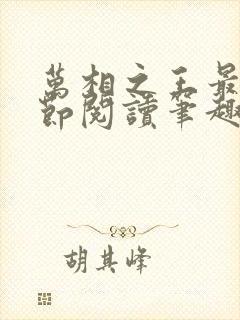 萬相之王最
節閱讀筆趣
胡其峰